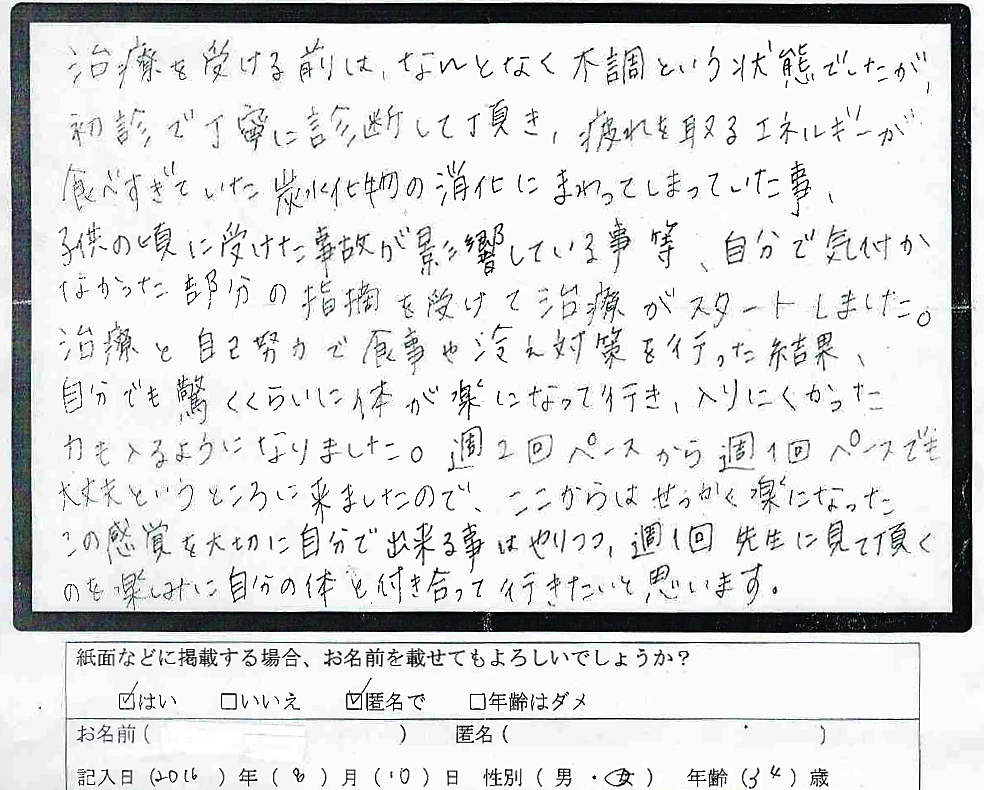 治療を受ける前は、なんとなく不調という状態でしたが、
初診で丁寧に診断して頂き、疲れを取るエネルギーが
食べすぎていた炭水化物の消化にまわってしまっていた事、
子供の頃に受けた事故が影響している事等、自分で気付か
なかった部分の指摘を受けて治療がスタートしました。
治療と自己努力で食事や冷え対策を行った結果、
自分でも驚くくらいに体が楽になって行き、入りにくかった
力も入るようになりました。週2回ペースから週1回ペースでも
大丈夫というところに来ましたので、ここからはせっかく楽になった
この感覚を大切に自分で出来る事はやりつつ、週1回先生に見て頂く
のを楽しみに自分の体と付き合って行きたいと思います。
紙面などに掲載する場合、お名前を載せてもよろしいでしょうか？
☑はい　□いいえ　☑匿名で　□年齢はダメ
お名前（　　　）　匿名（　　　）
記入日（2016）年（8）月（10）日　性別（男・女）　年齢（34）歳